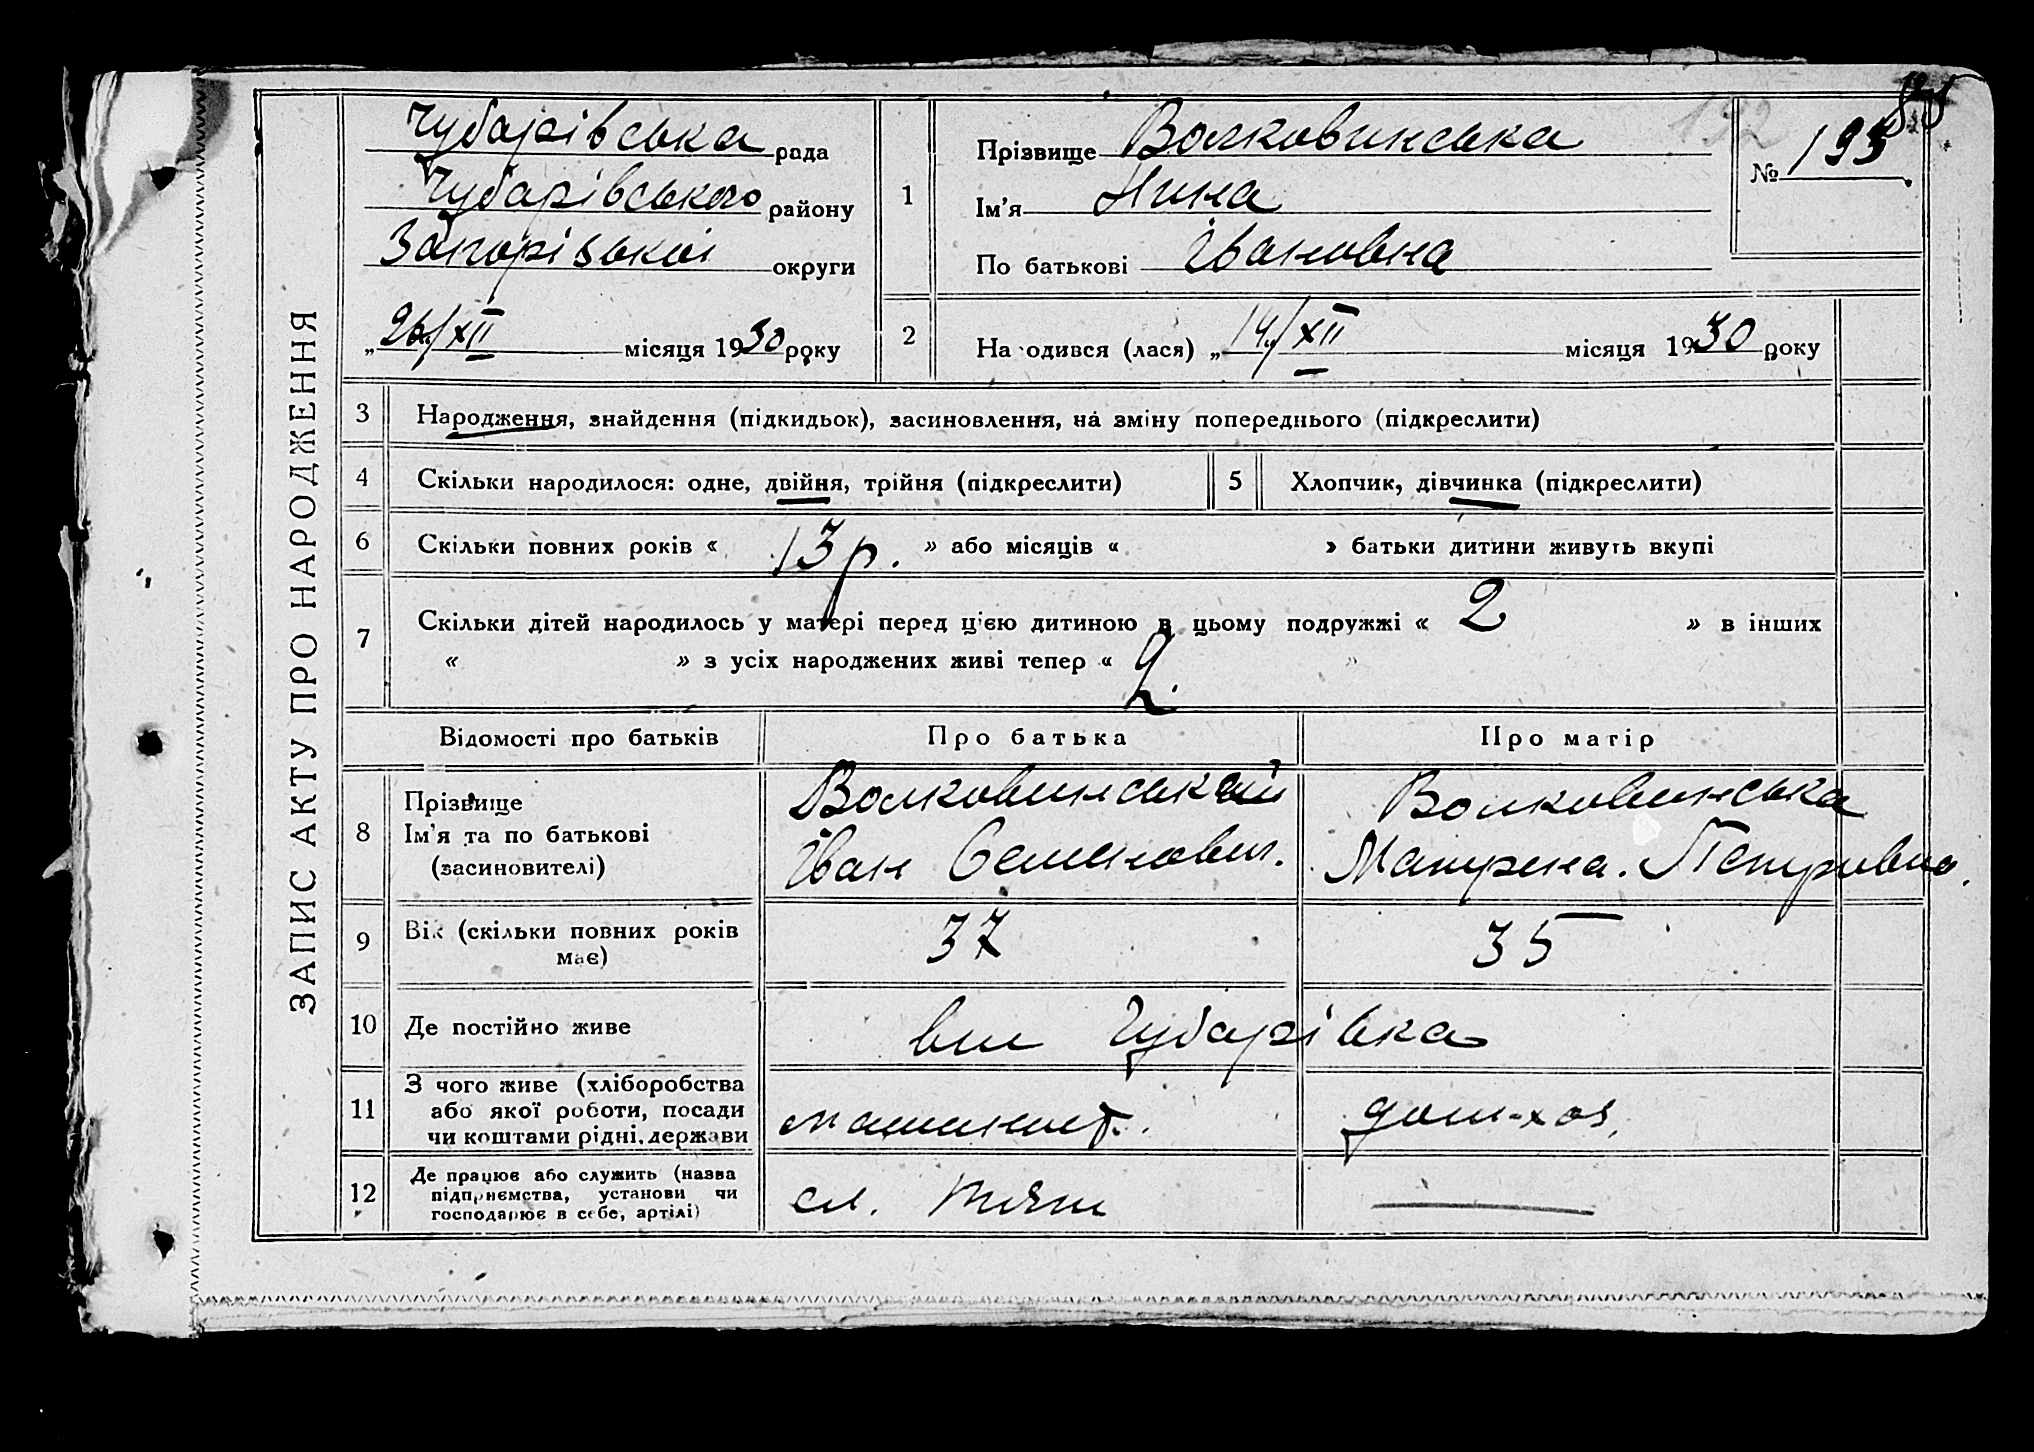 ЗАПИС АКТУ ПРО НАРОДЖЕННЯ
Чубарівська рада
Чубарівського району
Запорізької округи
„26/XII місяця 1930 року
1
Прізвище Волковинська
Ім'я Нина
По батькові Івановна
192
№ 193
2
Народився (лася) „14/XII місяця 1930 року
3 Народження, знайдення (підкидьок), засиновлення, на зміну попереднього (підкреслити)
4 Скільки народилося: одне, двійня, трійня (підкреслити) 5 Хлопчик, дівчинка (підкреслити)
6 Скільки повних років « 13 р. » або місяців « » батьки дитини живуть вкупі
7 Скільки дітей народилось у матері перед цією дитиною в цьому подружжі « 2 » в інших
« » з усіх народжених живі тепер « 2 »
Відомості про батьків Про батька Про матір
8 Прізвище
Ім'я та по батькові
(засиновителі)
Волковинський
Іван Семенович.
Волковинська
Мотрена. Петривно.
9 Вік (скільки повних років
має)
37 35
10 Де постійно живе
Чубарівка
11 З чого живе (хліборобства
або якої роботи, посади
чи коштами рідні, держави
машинист. дом-хоз.
12 Де працює або служить (назва
підприємства, установи чи
господарює в себе, артілі)
сл.